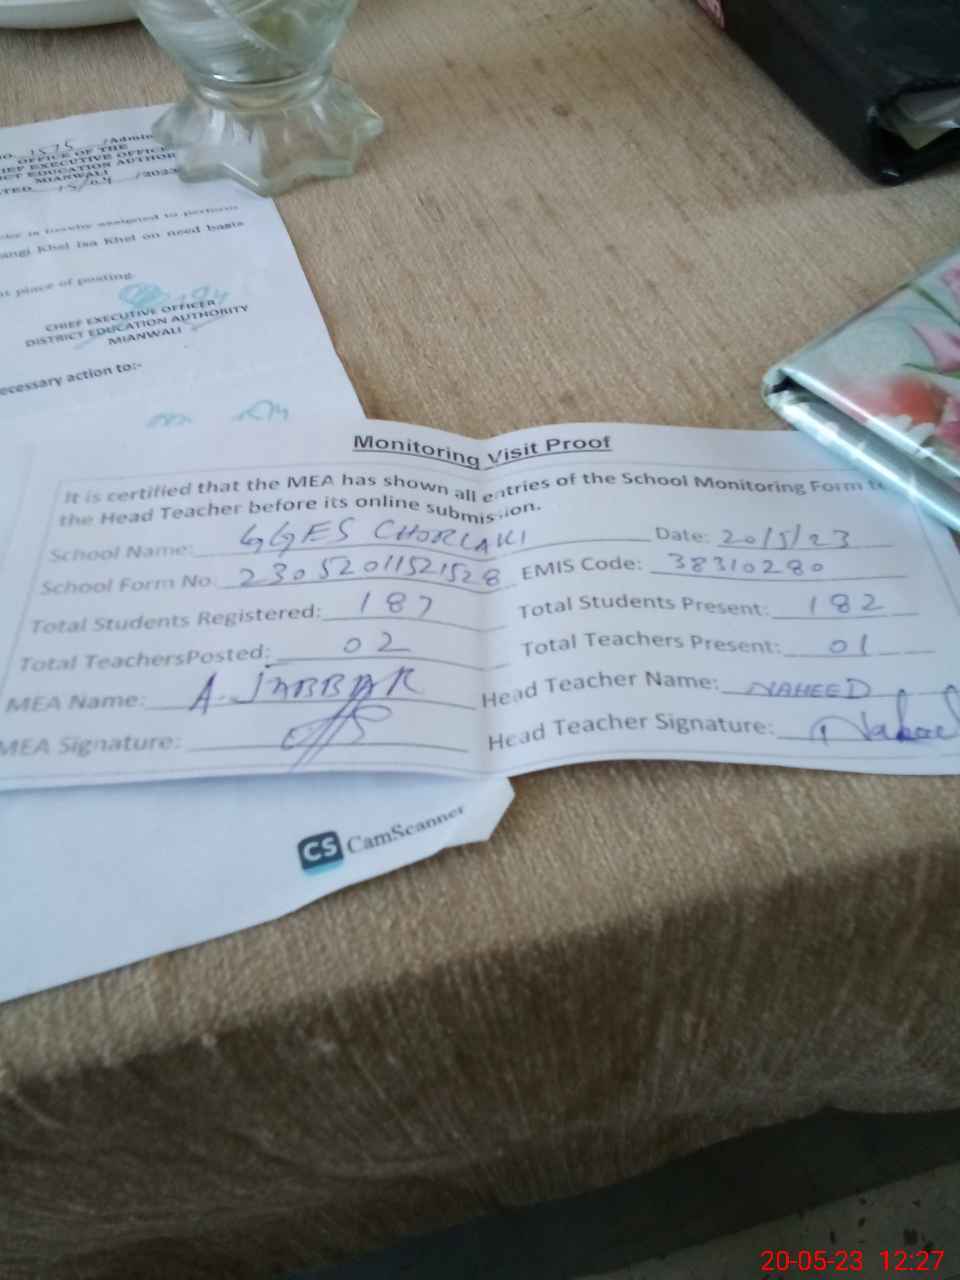 NO. 1575 /Admin
OFFICE OF THE
CHIEF EXECUTIVE OFFICER
DISTRICT EDUCATION AUTHOR
MIANWALI
DATED 15/04 /2023
is hereby assigned to perform
Khel Isa Khel on need basis
place of posting.
CHIEF EXECUTIVE OFFICER
DISTRICT EDUCATION AUTHORITY
MIANWALI
ecessary action to:-
Monitoring Visit Proof
It is certified that the MEA has shown all entries of the School Monitoring Form to
the Head Teacher before its online submission.
School Name: GGES CHORLAKI Date: 20/5/23
School Form No. 23052011521528 EMIS Code: 38310280
Total Students Registered: 187 Total Students Present: 182
Total TeachersPosted: 02 Total Teachers Present: 01
MEA Name: A. JABBAR Head Teacher Name: NAHEED
MEA Signature: Head Teacher Signature: Naheed
CS CamScanner
20-05-23 12:27